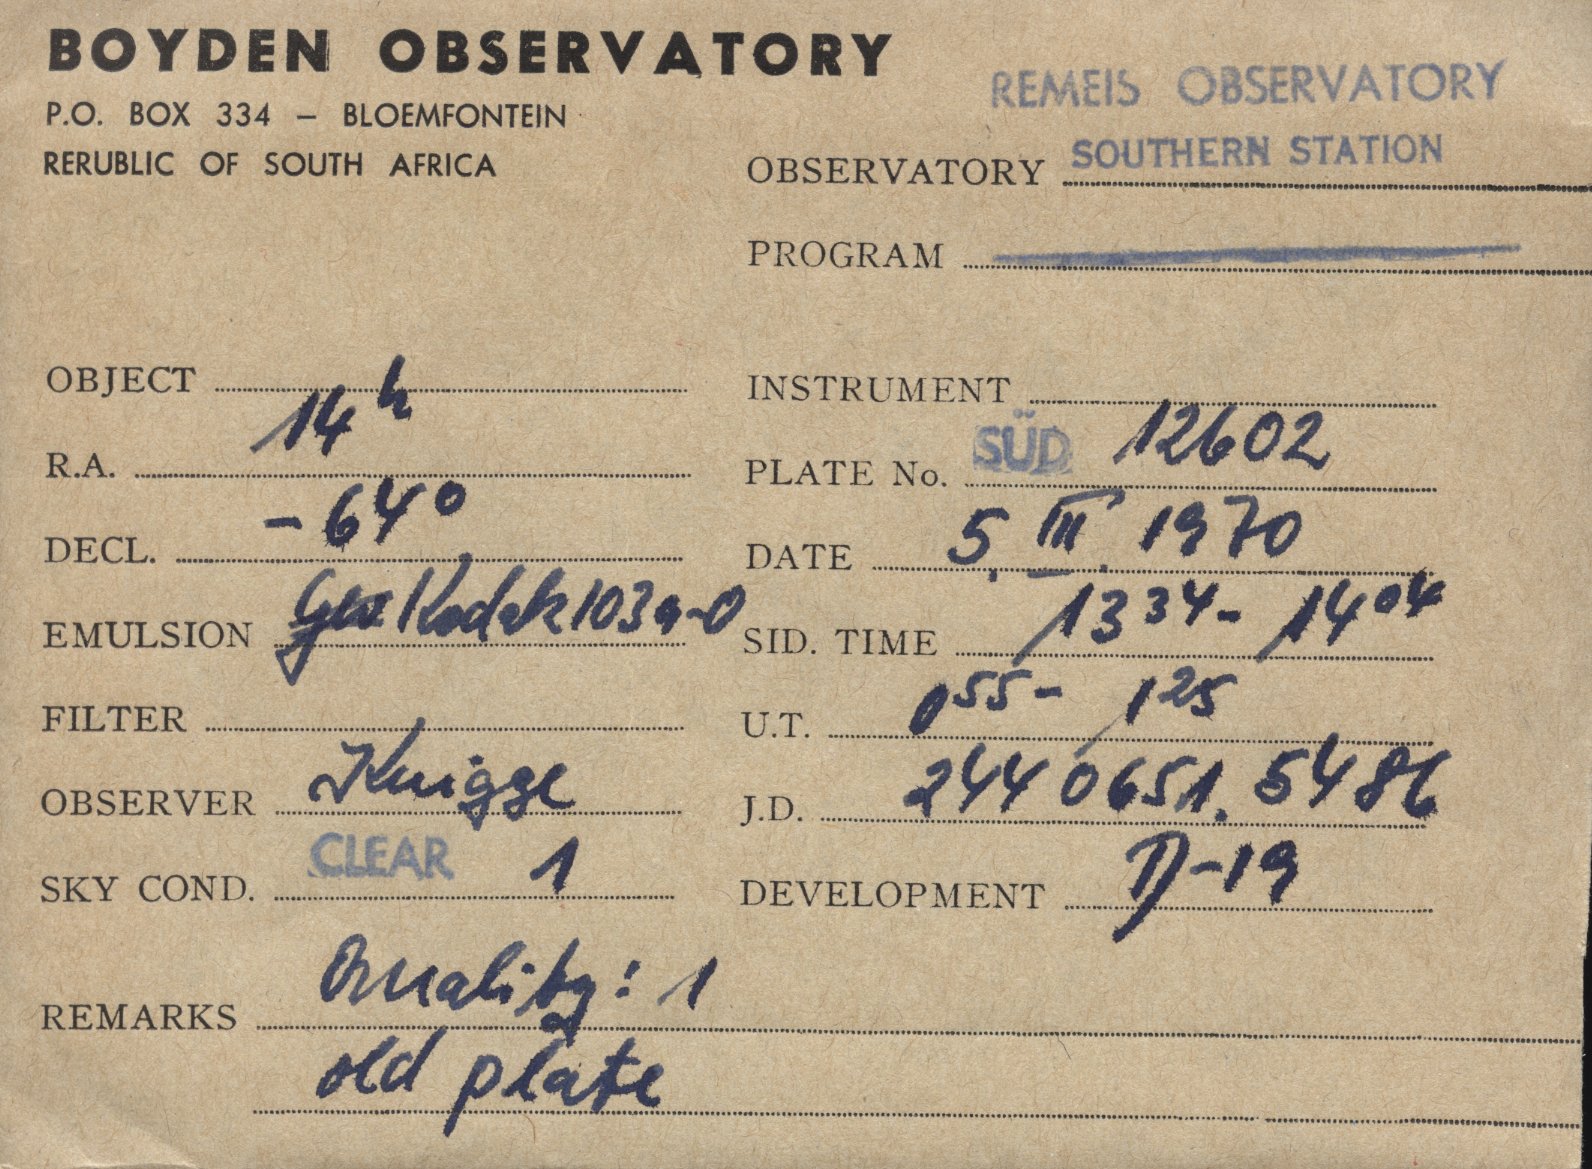 BOYDEN OBSERVATORY
P.O. BOX 334 – BLOEMFONTEIN
RERUBLIC OF SOUTH AFRICA
REMEIS OBSERVATORY
OBSERVATORY SOUTHERN STATION
PROGRAM
OBJECT
INSTRUMENT
R.A. 14h
PLATE No. SÜD 12602
DECL. -64°
DATE 5. III. 1970
EMULSION Kodak 103a-O
SID. TIME 13 34 - 14 04
FILTER
U.T. 0 55 - 1 25
OBSERVER Knigge
J.D. 244 0651.5486
SKY COND. CLEAR 1
DEVELOPMENT D-19
REMARKS Quality: 1
old plate